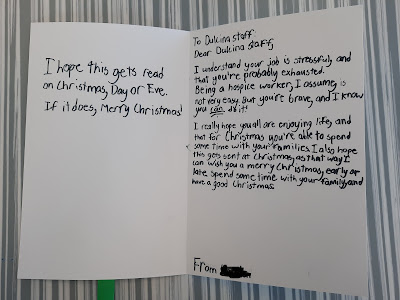 I hope this gets read
on Christmas, Day or Eve.
If it does, Merry Christmas!
To Dulcina staff:
Dear Dulcina Staff,
I understand your job is stressful, and
that you're probably exhausted.
Being a hospice worker, I assume, is
not very easy. But you're brave, and I know
you can do it!
I really hope you all are enjoying life, and
that for Christmas you're able to spend
some time with your families. I also hope
this gets sent at Christmas, as that way I
can wish you a merry Christmas, early or
late. Spend some time with your family, and
have a good Christmas.
From